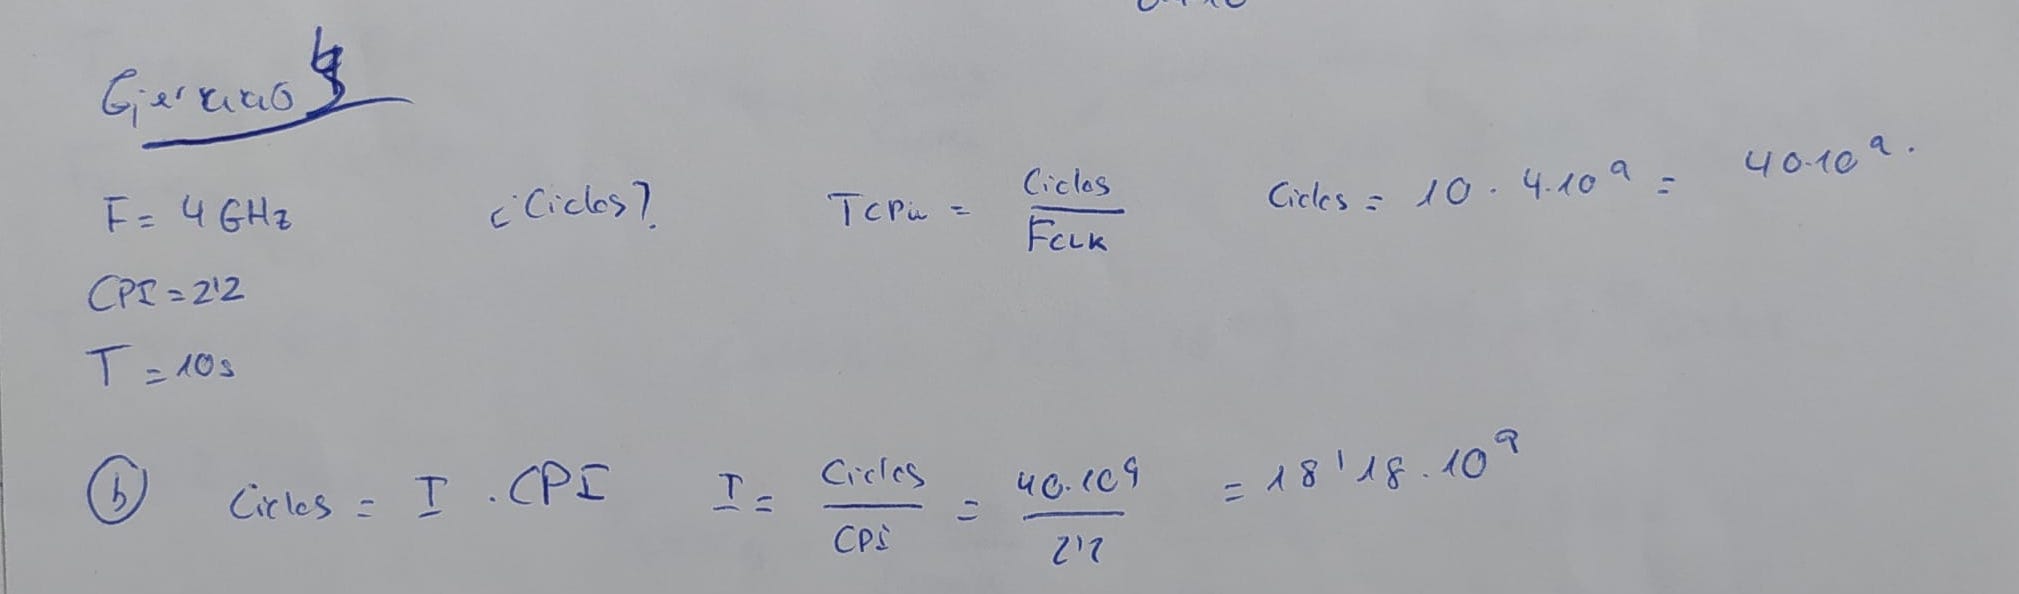 Ejercicio 4
F = 4 GHz ¿Ciclos? TCPU = Ciclos / FCLK Ciclos = 10 · 4·10⁹ = 40·10⁹.
CPI = 2'2
T = 10s
b) Ciclos = I · CPI I = Ciclos / CPI = 40·10⁹ / 2'2 = 18'18·10⁹